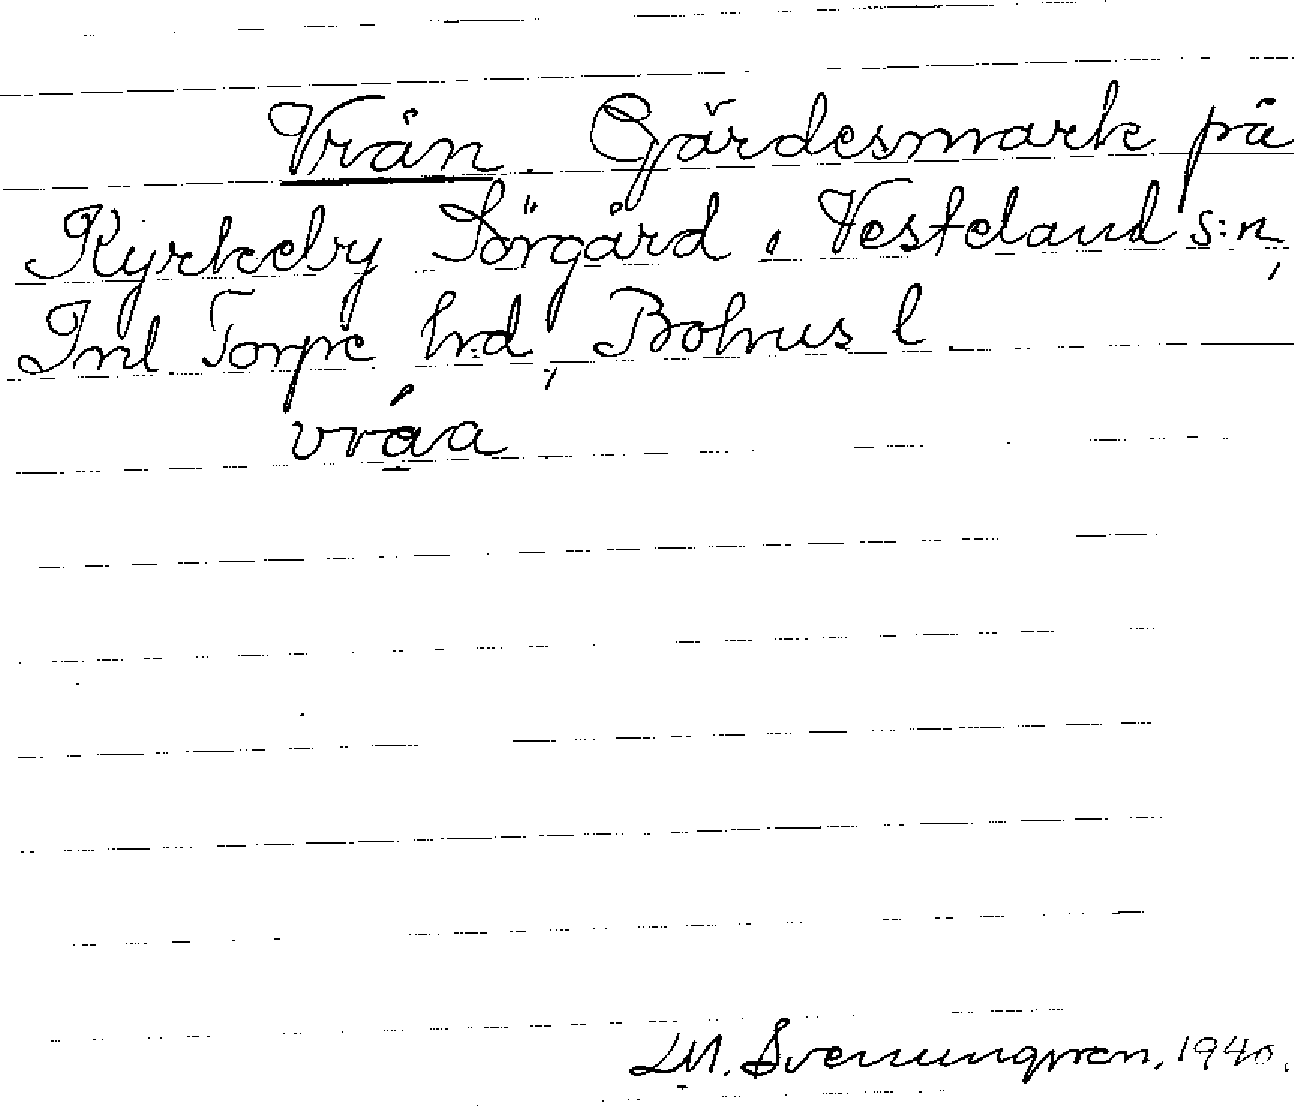 Vrån. Gärdesmark på
Kyrkeby Sörgård, Vesteland s:n,
Inl Torpe hrd, Bohus l
vráa
LM. Svenungsson, 1940.